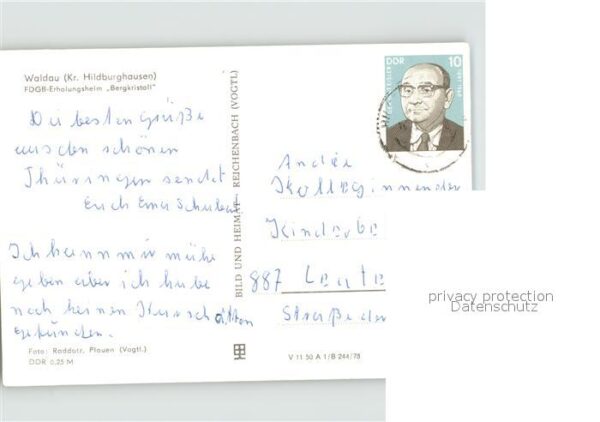 Waldau (Kr. Hildburghausen)
FDGB-Erholungsheim „Bergkristall"
Die besten Grüße
aus den schönen
Thüringen sendet
Euch
Ich kann mir mühe
geben aber ich habe
noch keinen Kurschatten
gefunden.
Foto: Raddatz, Plauen (Vogtl.)
DDR 0,25 M
BILD UND HEIMAT · REICHENBACH (VOGTL)
DDR 10
André
Kinde
887
Straße der
V 11 50 A 1/B 244/78
privacy protection
Datenschutz